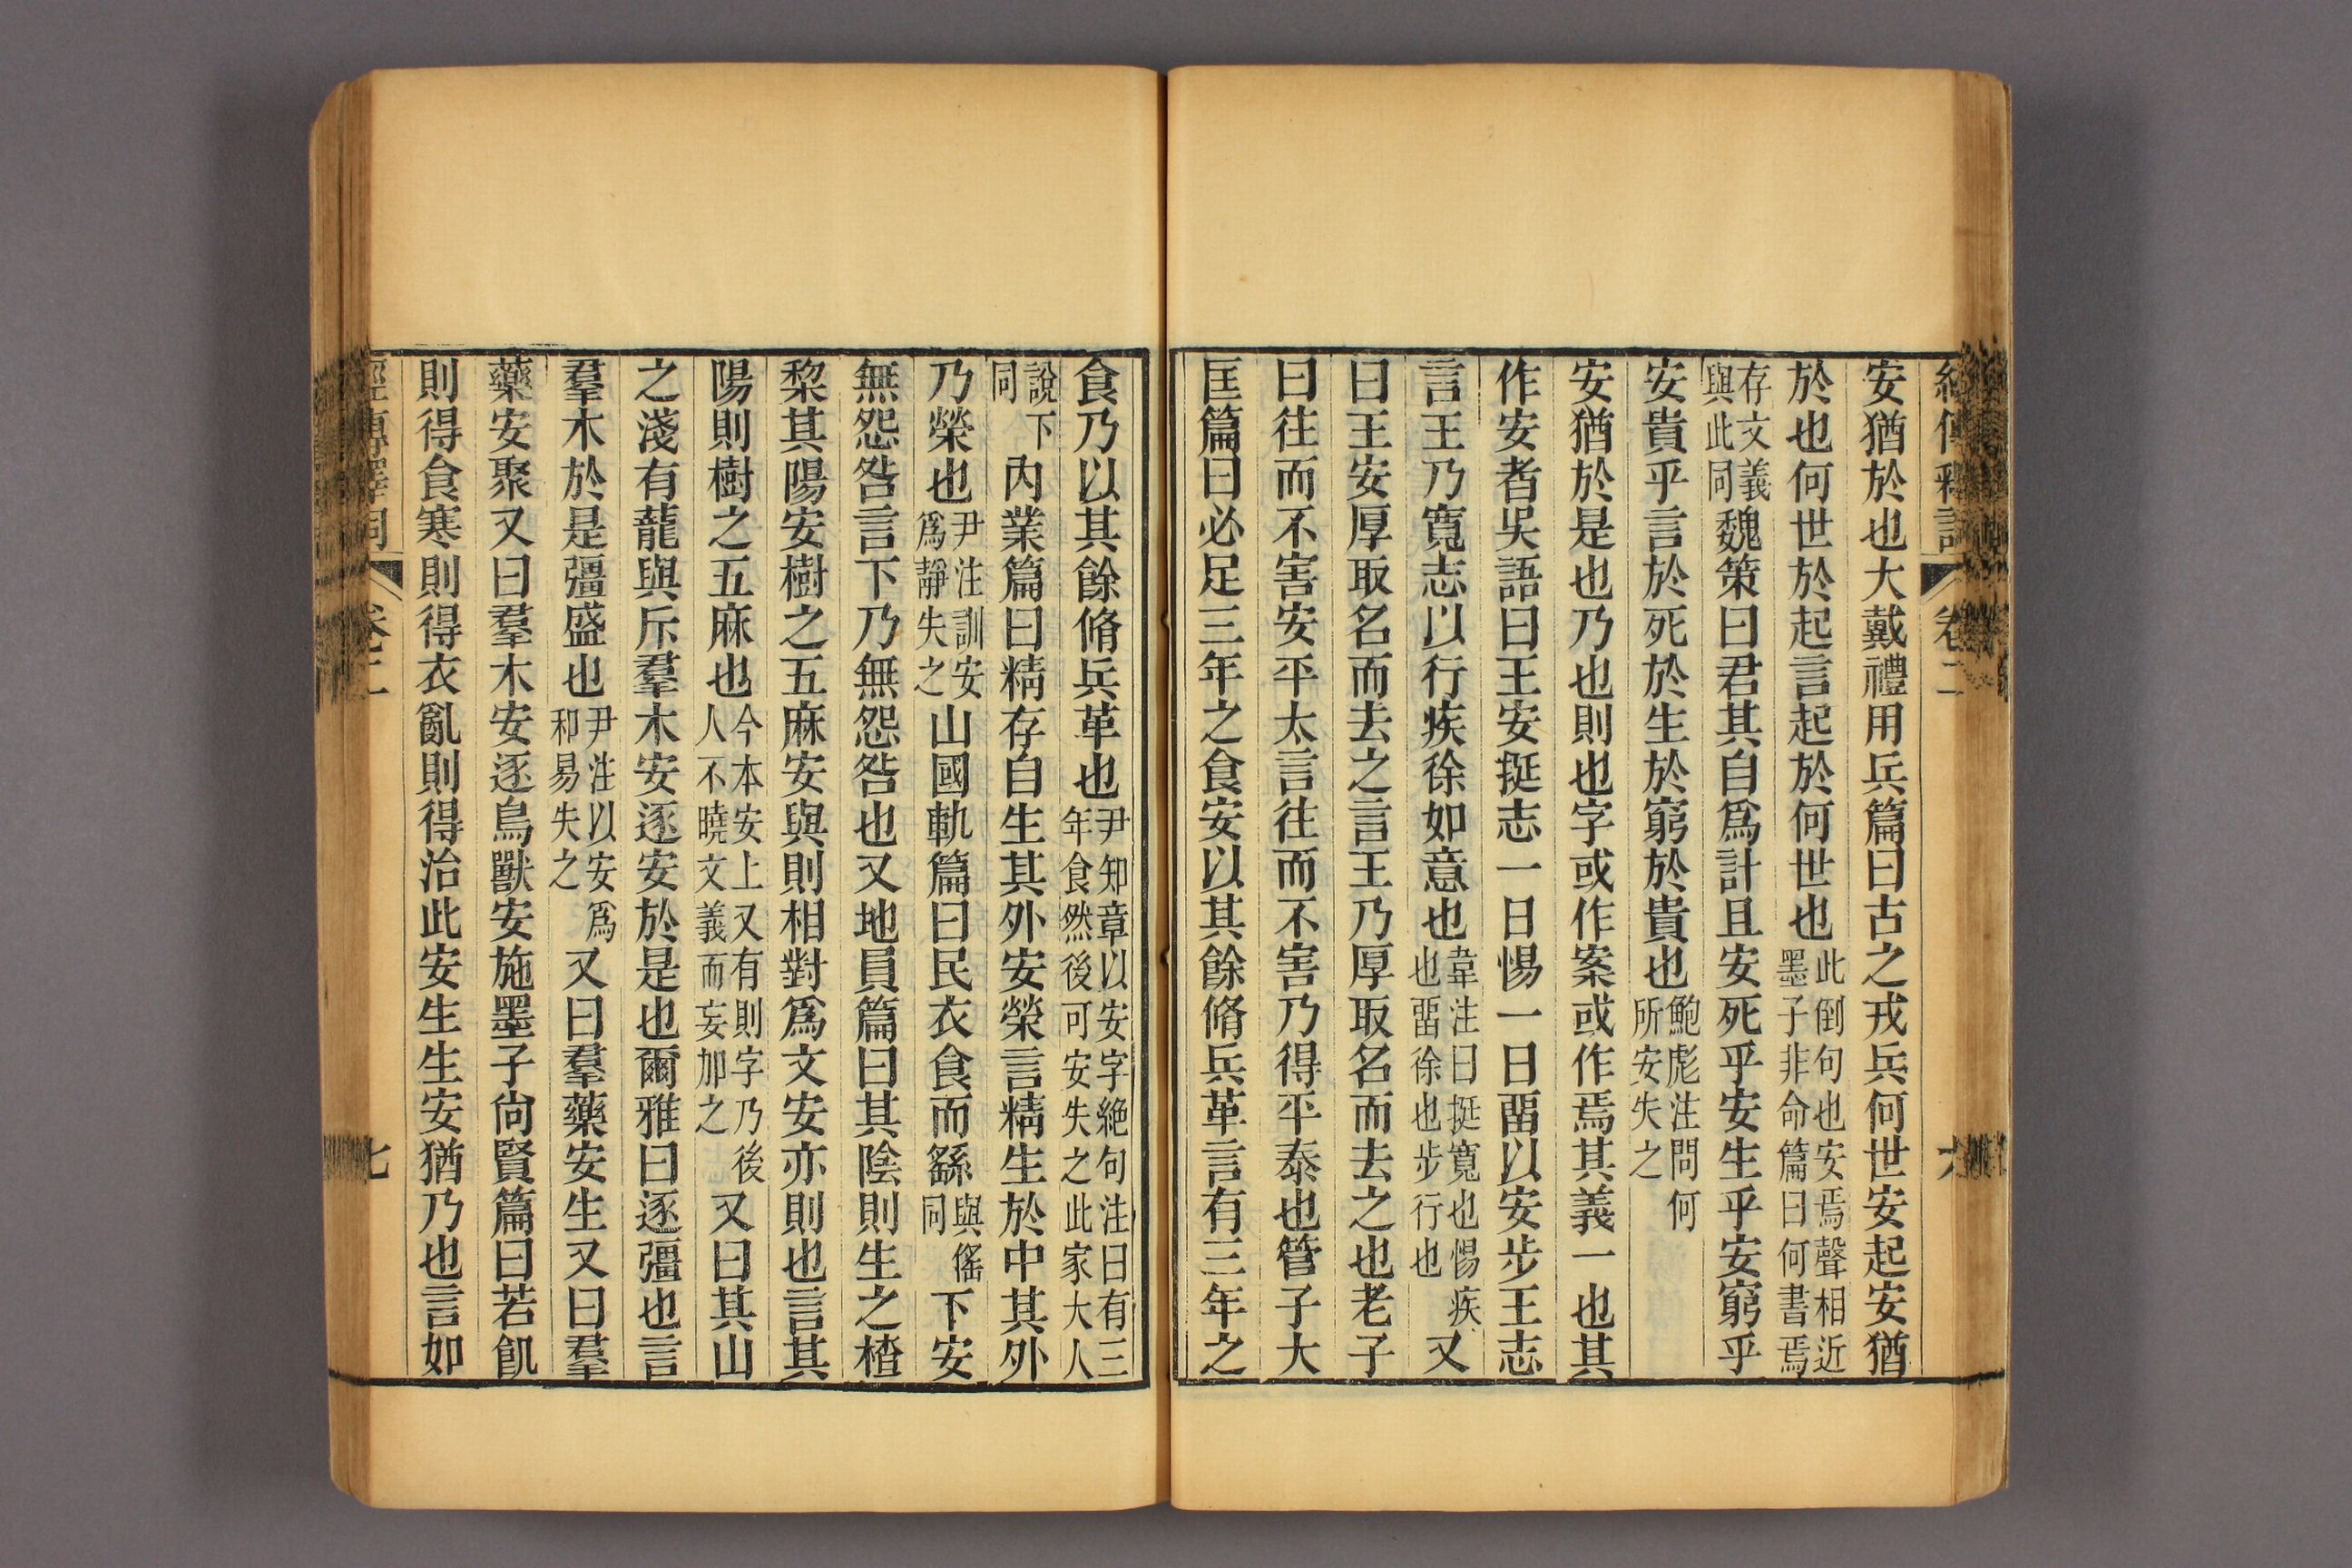 經傳釋詞 卷二 六
安猶於也大戴禮用兵篇曰古之戎兵何世安起安猶
於也何世於起言起於何世也此倒句也安焉聲相近墨子非命篇曰何書焉
存文義與此同魏策曰君其自爲計且安死乎安生乎安窮乎
安貴乎言於死於生於窮於貴也鮑彪注問何所安失之
安猶於是也乃也則也字或作案或作焉其義一也其
作安者吳語曰王安挺志一日惕一日畱以安步王志
言王乃寬志以行疾徐如意也韋注曰挺寬也惕疾也畱徐也步行也又
曰王安厚取名而去之言王乃厚取名而去之也老子
曰往而不害安平太言往而不害乃得平泰也管子大
匡篇曰必足三年之食安以其餘脩兵革言有三年之
食乃以其餘脩兵革也尹知章以安字絶句注曰有三年食然後可安失之此家大人
說下同內業篇曰精存自生其外安榮言精生於中其外
乃榮也尹注訓安爲靜失之山國軌篇曰民衣食而繇與徭同下安
無怨咎言下乃無怨咎也又地員篇曰其陰則生之楂
棃其陽安樹之五麻安與則相對爲文安亦則也言其
陽則樹之五麻也今本安上又有則字乃後人不曉文義而妄加之又曰其山
之淺有蘢與斥羣木安逐安於是也爾雅曰逐彊也言
羣木於是彊盛也尹注以安爲和易失之又曰羣藥安生又曰羣
藥安聚又曰羣木安逐鳥獸安施墨子尙賢篇曰若飢
則得食寒則得衣亂則得治此安生生生安猶乃也言如
經傳釋詞 卷二 七